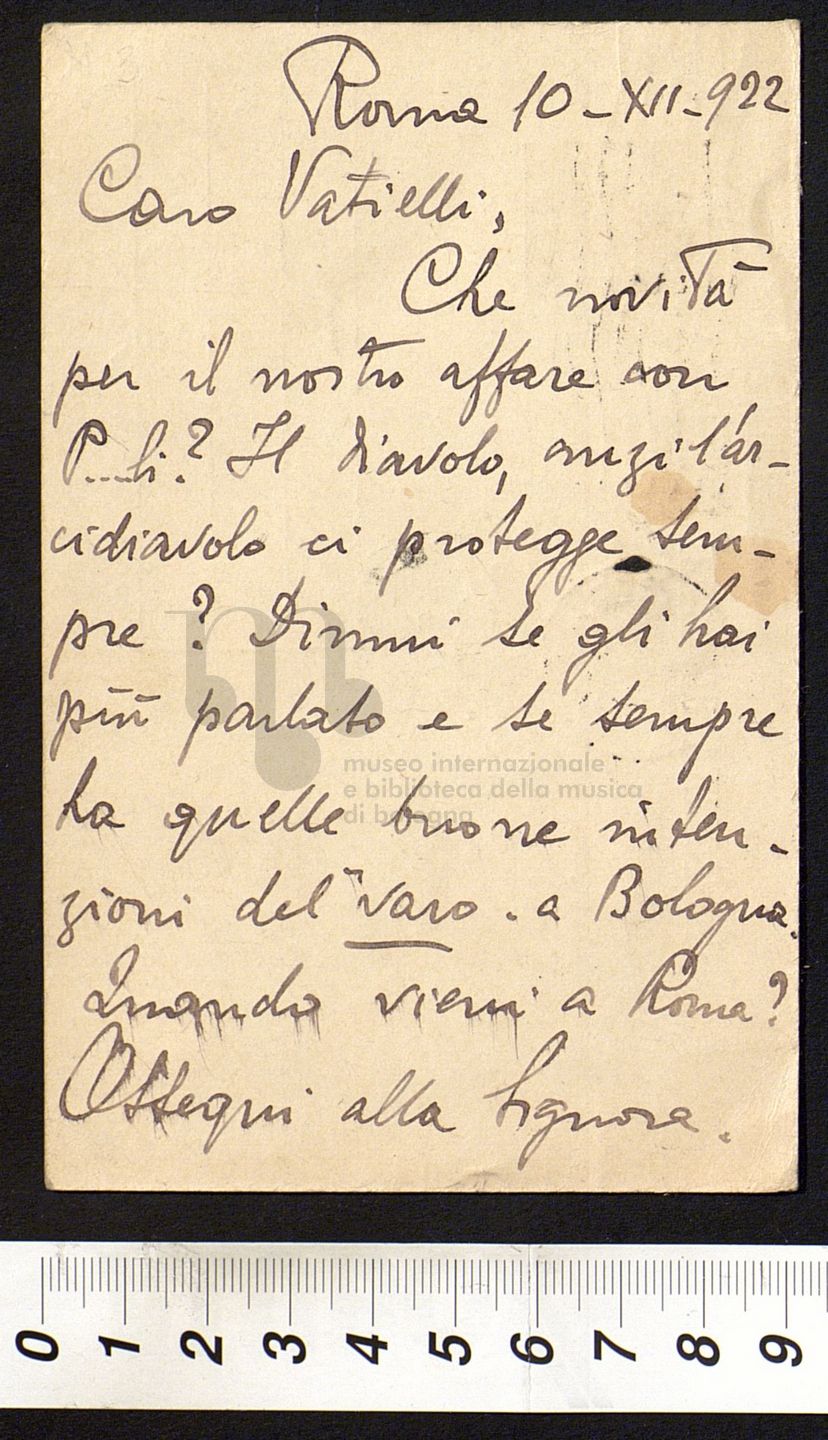 Roma 10-XII-922
Caro Vatielli,
Che novità
per il nostro affare con
P....li? Il diavolo, anzi l'ar-
cidiavolo ci protegge sem-
pre? Dimmi se gli hai
più parlato e se sempre
ha quelle buone inten-
zioni del "varo. a Bologna.
Quando vieni a Roma?
Ossequi alla Signora.
museo internazionale
e biblioteca della musica
di bologna
0 1 2 3 4 5 6 7 8 9